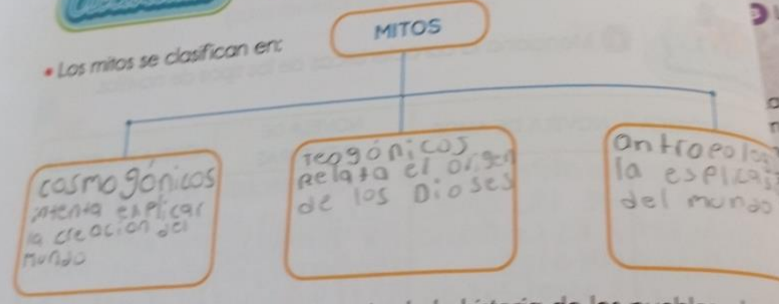 MITOS
• Los mitos se clasifican en:
cosmogónicos
intenta explicar
la creacion del
mundo
Teogónicos
Relata el origen
de los Dioses
la
del mundo